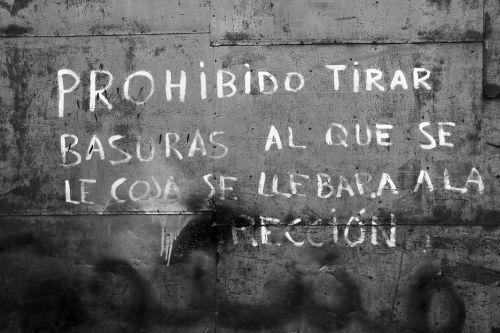 PROHIBIDO TIRAR
BASURAS AL QUE SE
LE COJA SE LLEBARA A LA
RECCIÓN